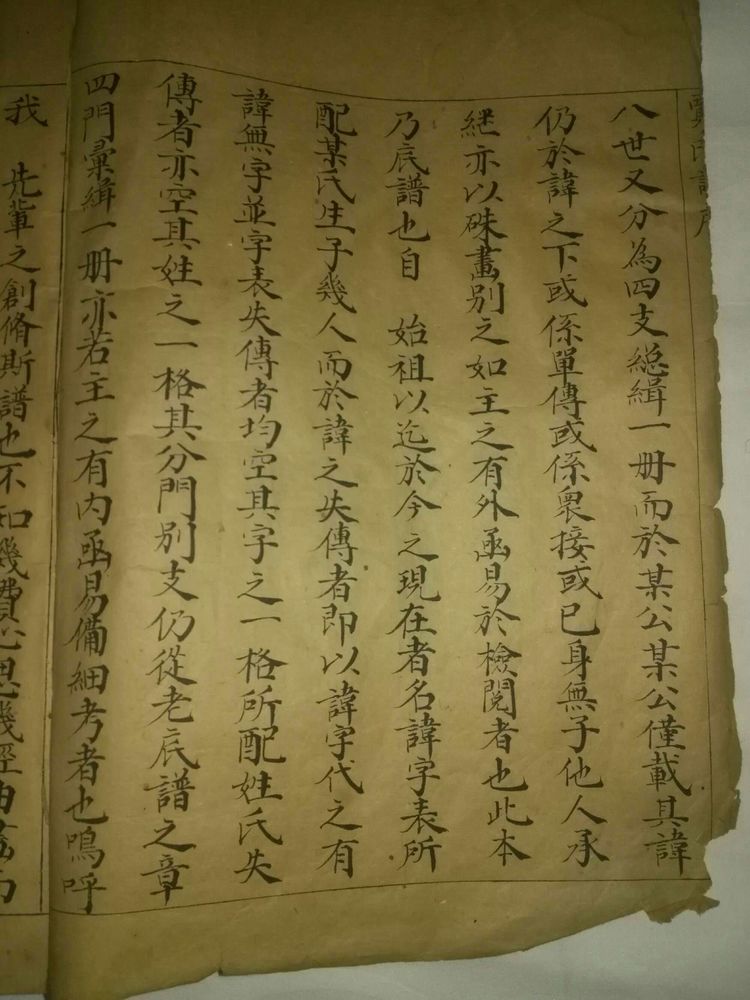 八世又分為四支総緝一册而於某公某公僅載其諱
仍於諱之下或係單傳或係衆接或已身無子他人承
継亦以硃畫別之如主之有外函易於檢閱者也此本
乃底譜也自 始祖以迄於今之現在者名諱字表所
配某氏生子幾人而於諱之失傳者即以諱字代之有
諱無字並字表失傳者均空其字之一格所配姓氏失
傳者亦空其姓之一格其分門別支仍從老底譜之章
四門彙緝一册亦若主之有内函易備細考者也嗚呼
我 先輩之創脩斯譜也不知幾費心思幾經